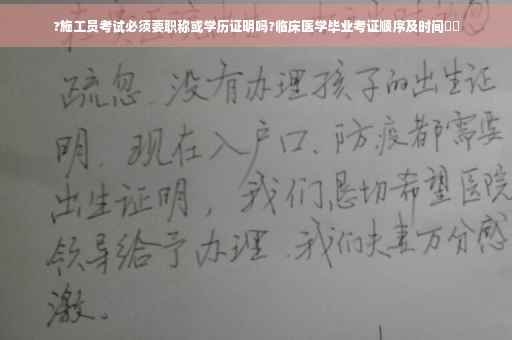 ?施工员考试必须要职称或学历证明吗?临床医学毕业考证顺序及时间
疏忽、没有办理孩子的出生证
明.现在入户口、防疫都需要
出生证明，我们恳切希望医院
领导给予办理.我们夫妻万分感
激。